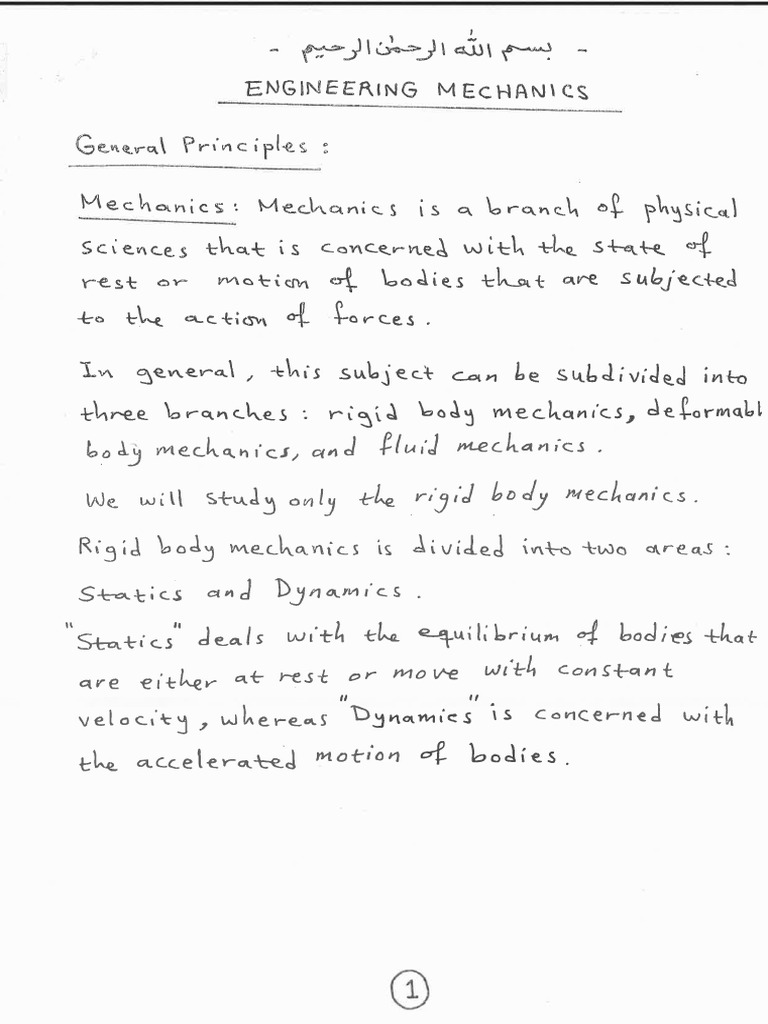 - بسم الله الرحمٰن الرحيم -
ENGINEERING MECHANICS
General Principles :
Mechanics : Mechanics is a branch of physical
sciences that is concerned with the state of
rest or motion of bodies that are subjected
to the action of forces .
In general , this subject can be subdivided into
three branches : rigid body mechanics, deformabl
body mechanics, and fluid mechanics .
We will study only the rigid body mechanics .
Rigid body mechanics is divided into two areas :
Statics and Dynamics .
"Statics" deals with the equilibrium of bodies that
are either at rest or move with constant
velocity , whereas "Dynamics" is concerned with
the accelerated motion of bodies .
1